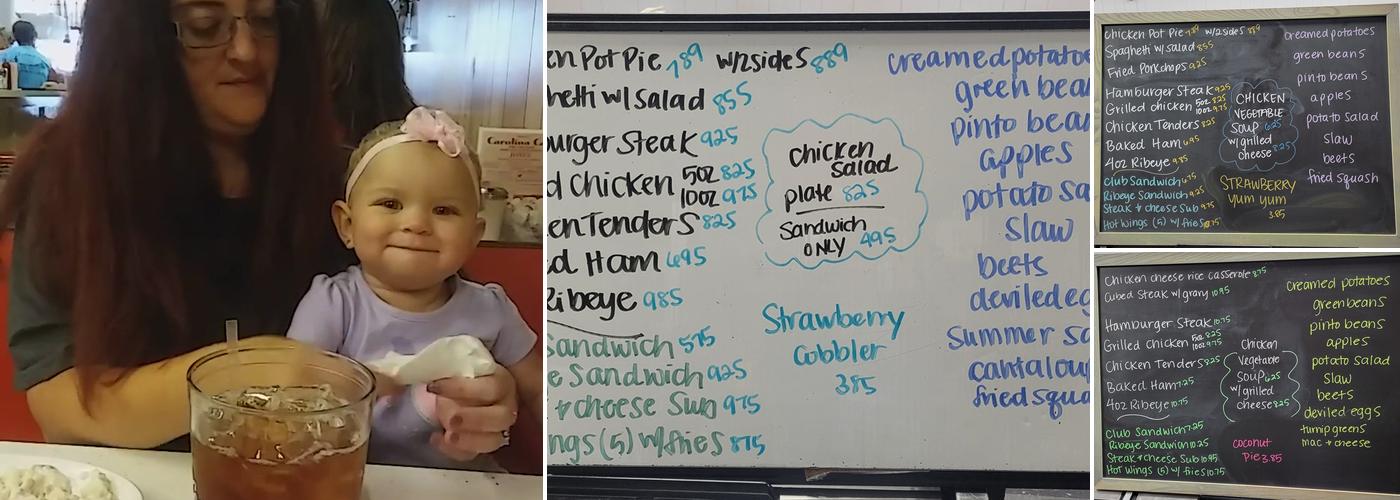 Carolina
en Pot Pie 789 w/2 sides 889
hetti w/ Salad 855
urger Steak 925
d Chicken 5oz 825
10oz 975
en Tenders 825
d Ham 695
Ribeye 985
Sandwich 575
e Sandwich 925
+ cheese Sub 975
ngs (5) w/ fries 875
chicken
Salad
plate 825
Sandwich
ONLY 495
Strawberry
Cobbler
385
creamed potatoe
green bean
pinto bean
apples
potato sa
Slaw
beets
deviled eg
Summer sq
cantalou
fried squa
Chicken Pot Pie 7.89 w/2 sides 889
Spaghetti w/ Salad 855
Fried Porkchops 925
Hamburger Steak 925
Grilled Chicken 5oz 8.25
10oz 9.75
Chicken Tenders 825
Baked Ham 695
4oz Ribeye 985
Club Sandwich 675
Ribeye Sandwich 925
Steak + cheese Sub 975
Hot wings (5) w/ fries
CHICKEN
VEGETABLE
SOUP 625
w/ grilled
cheese 825
STRAWBERRY
YUM YUM
3.85
creamed potatoes
green beans
pinto beans
apples
potato salad
slaw
beets
fried squash
Chicken cheese rice casserole 875
Cubed Steak w/ gravy 10.95
Hamburger Steak 10.75
Grilled Chicken 5oz 8.25
10oz 9.75
Chicken Tenders 9.25
Baked Ham 7.25
4oz Ribeye 10.75
Club Sandwich 7.25
Ribeye Sandwich 10.25
Steak + cheese Sub 10.95
Hot Wings (5) w/ fries 10.75
Chicken
Vegetable
Soup 6.25
w/ grilled
cheese 8.25
coconut
pie 3.85
creamed potatoes
green beans
pinto beans
apples
potato salad
slaw
beets
deviled eggs
turnip greens
mac + cheese